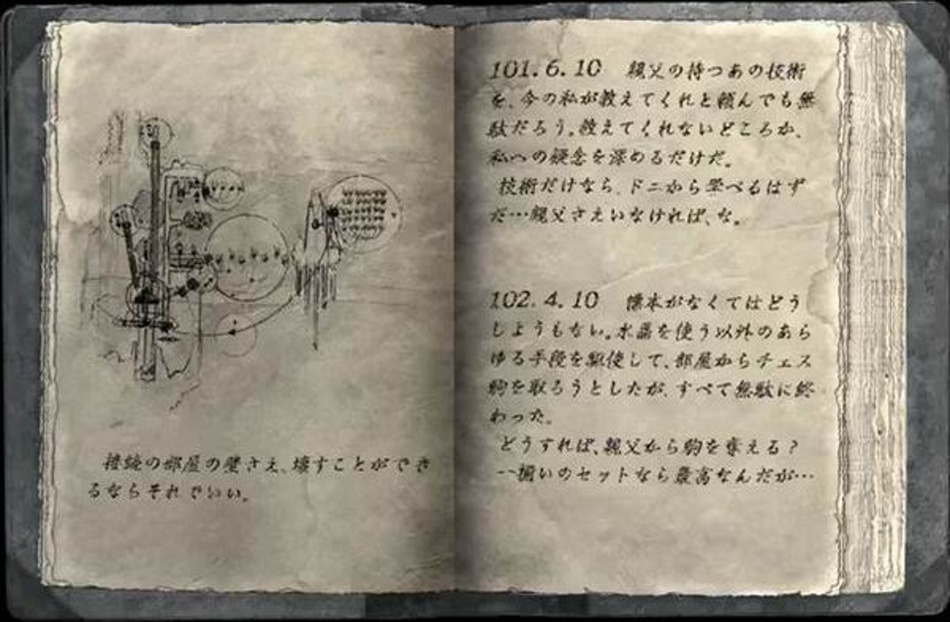 接続の部屋の壁さえ、壊すことができ
るならそれでいい。
101.6.10 親父の持つあの技術
を、今の私が教えてくれと頼んでも無
駄だろう。教えてくれないどころか、
私への疑念を深めるだけだ。
技術だけなら、ドニから学べるはず
だ…親父さえいなければ、な。
102.4.10 標本がなくてはどう
しようもない。水晶を使う以外のあら
ゆる手段を駆使して、部屋からチェス
駒を取ろうとしたが、すべて無駄に終
わった。
どうすれば、親父から駒を奪える？
一揃いのセットなら最高なんだが…